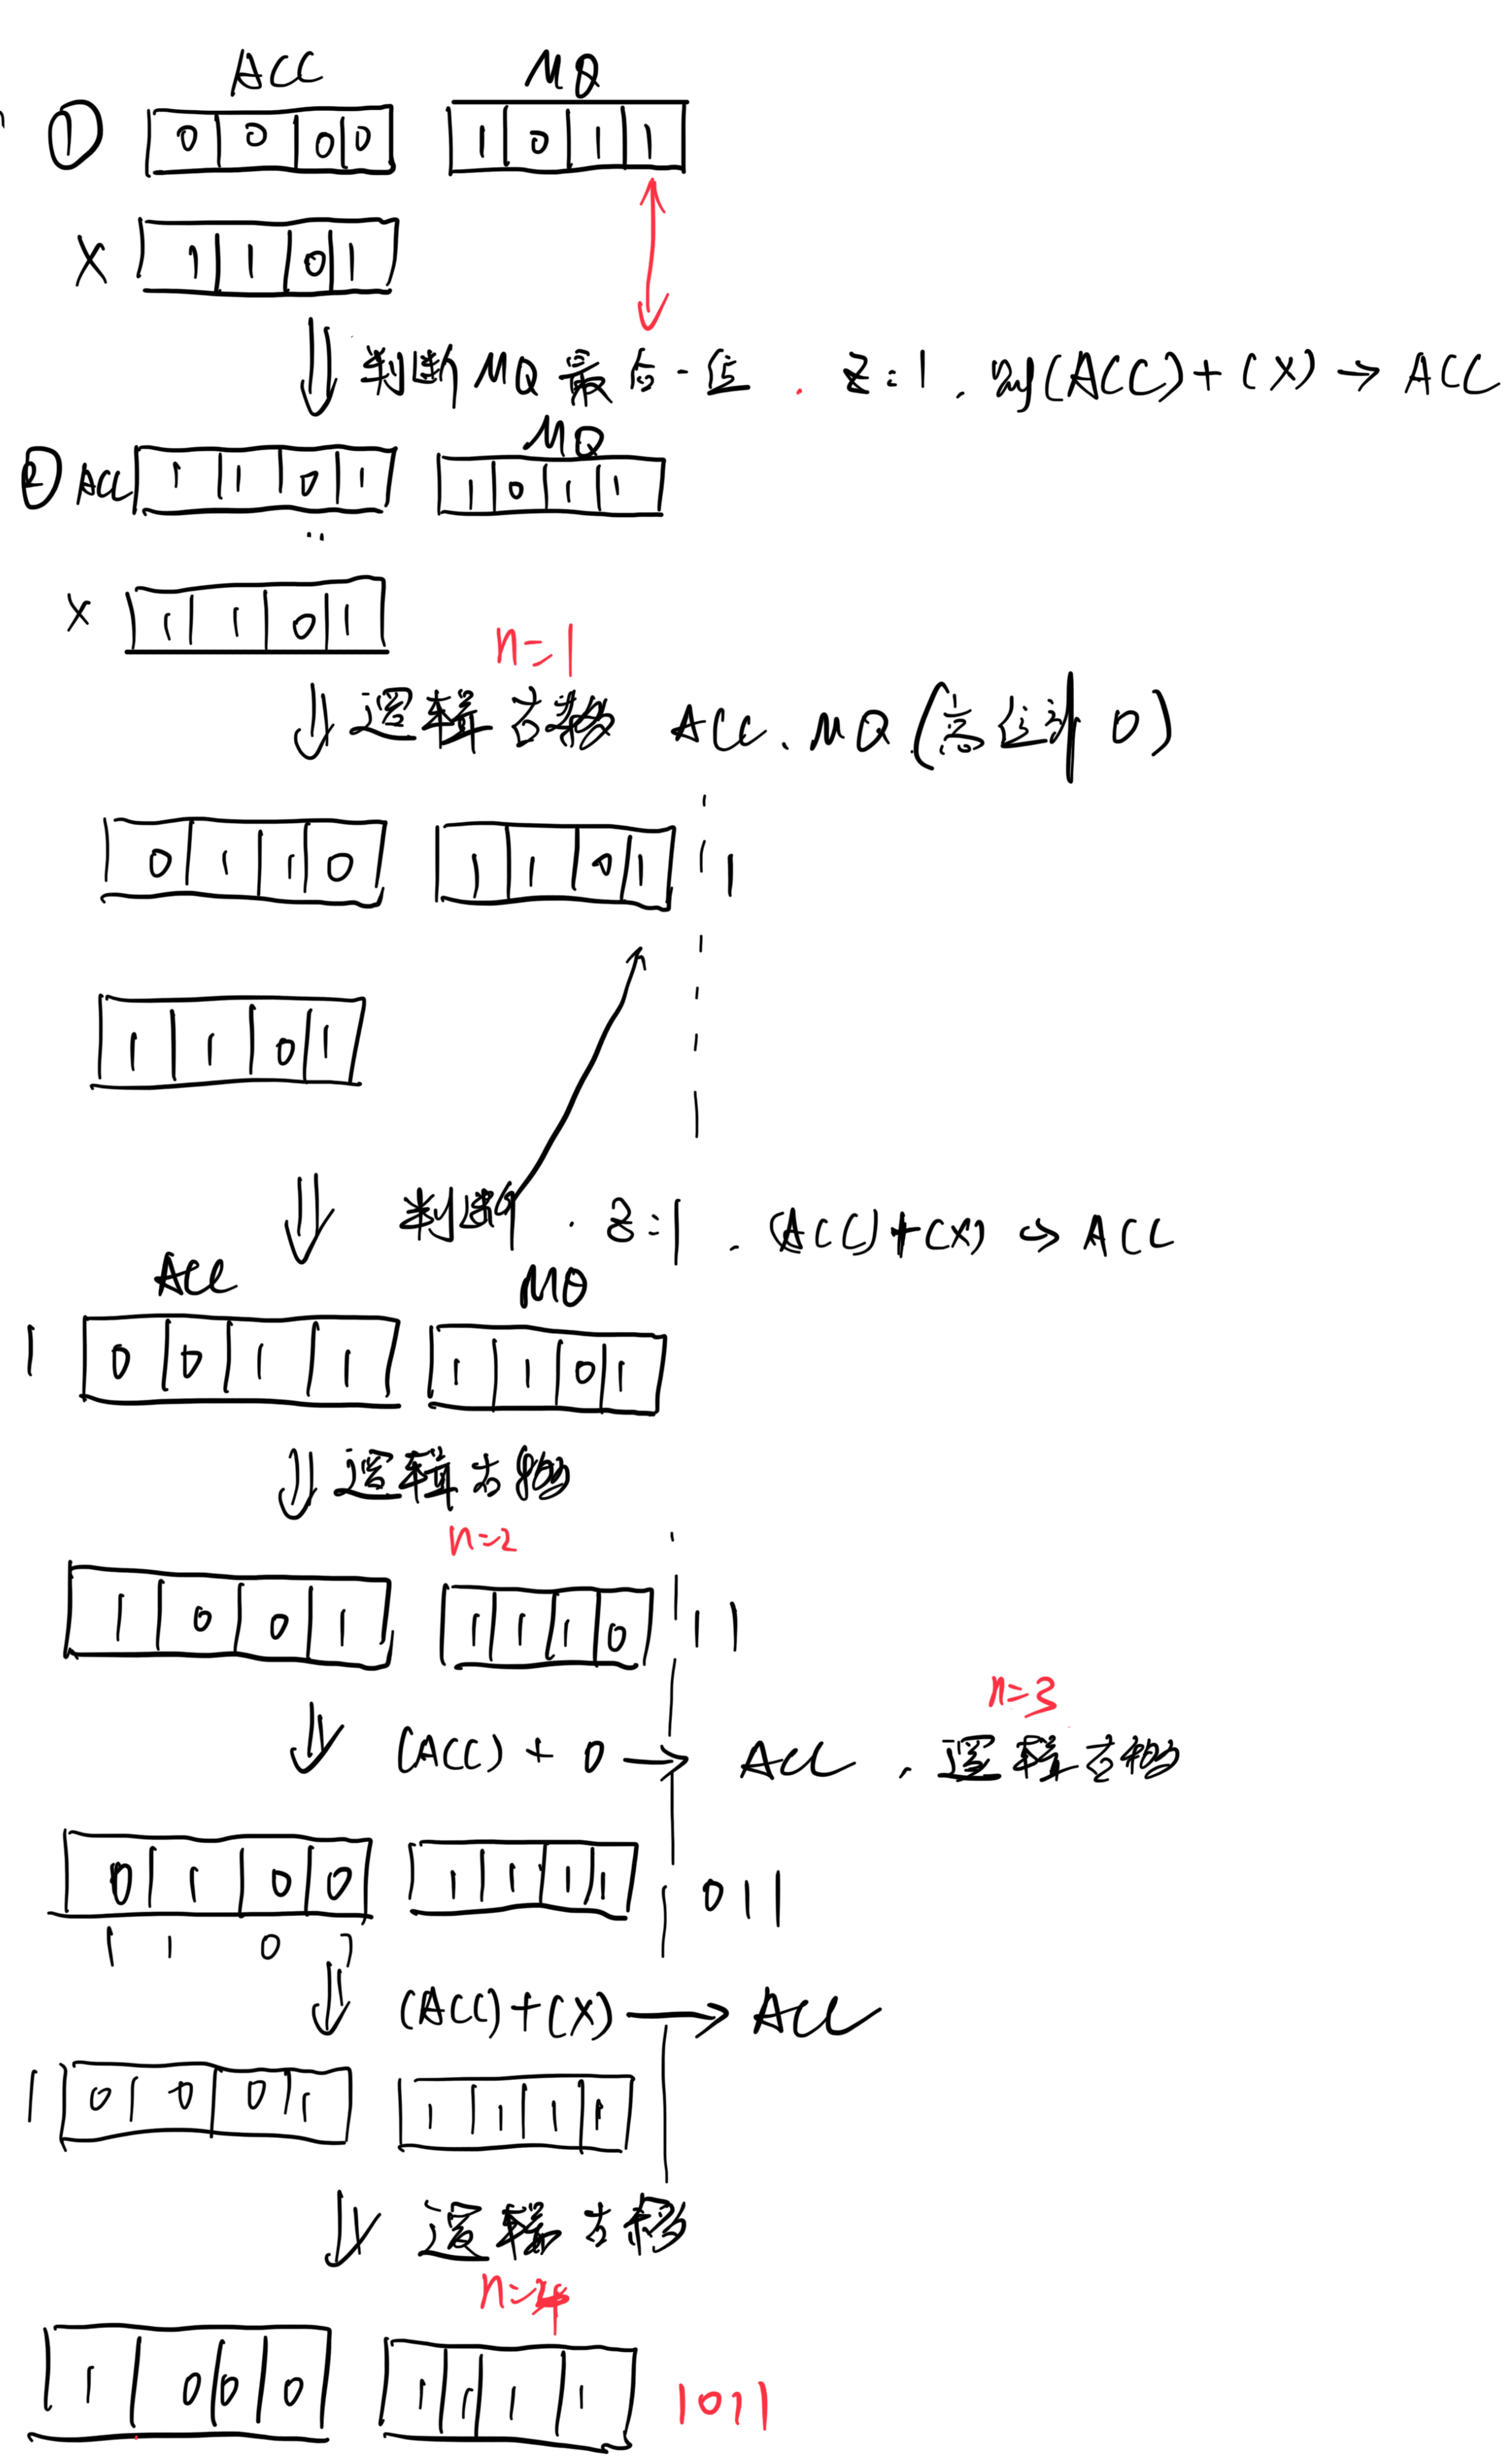 ACC MQ
① 0 0 0 0 1 0 1 1
X 1 1 0 1
判断MQ最后一位. Z=1. 则(ACC)+(X)→ACC
MQ
② ACC 1 1 0 1 1 0 1 1
X 1 1 0 1
n=1
逻辑右移 ACC、MQ(高位补0)
0 1 1 0 1 1 0 1 1
1 1 0 1
判断. Z=1. (ACC)+(X)→ACC
ACC MQ
1 0 0 1 1 1 1 0 1
逻辑右移
n=2
1 0 0 1 1 1 1 0 1 1
n=3
(ACC)+0→ACC. 逻辑右移
0 1 0 0 1 1 1 1 0 1 1
1 1 0 1
(ACC)+(X)→ACC
1 0 0 0 1 1 1 1 1
逻辑右移
n=4
1 0 0 0 1 1 1 1 1011